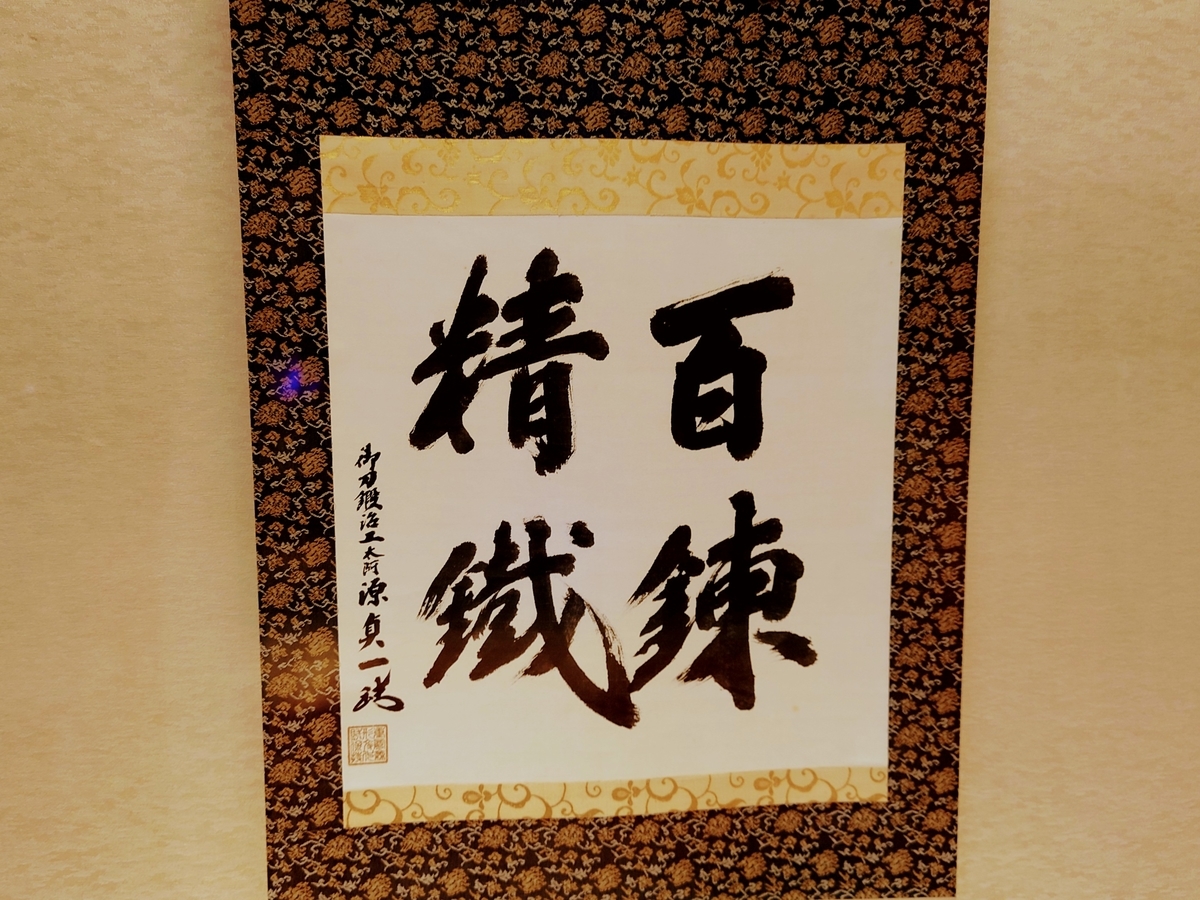 百錬
精鐵
御刀鍛冶工太阿源貞一